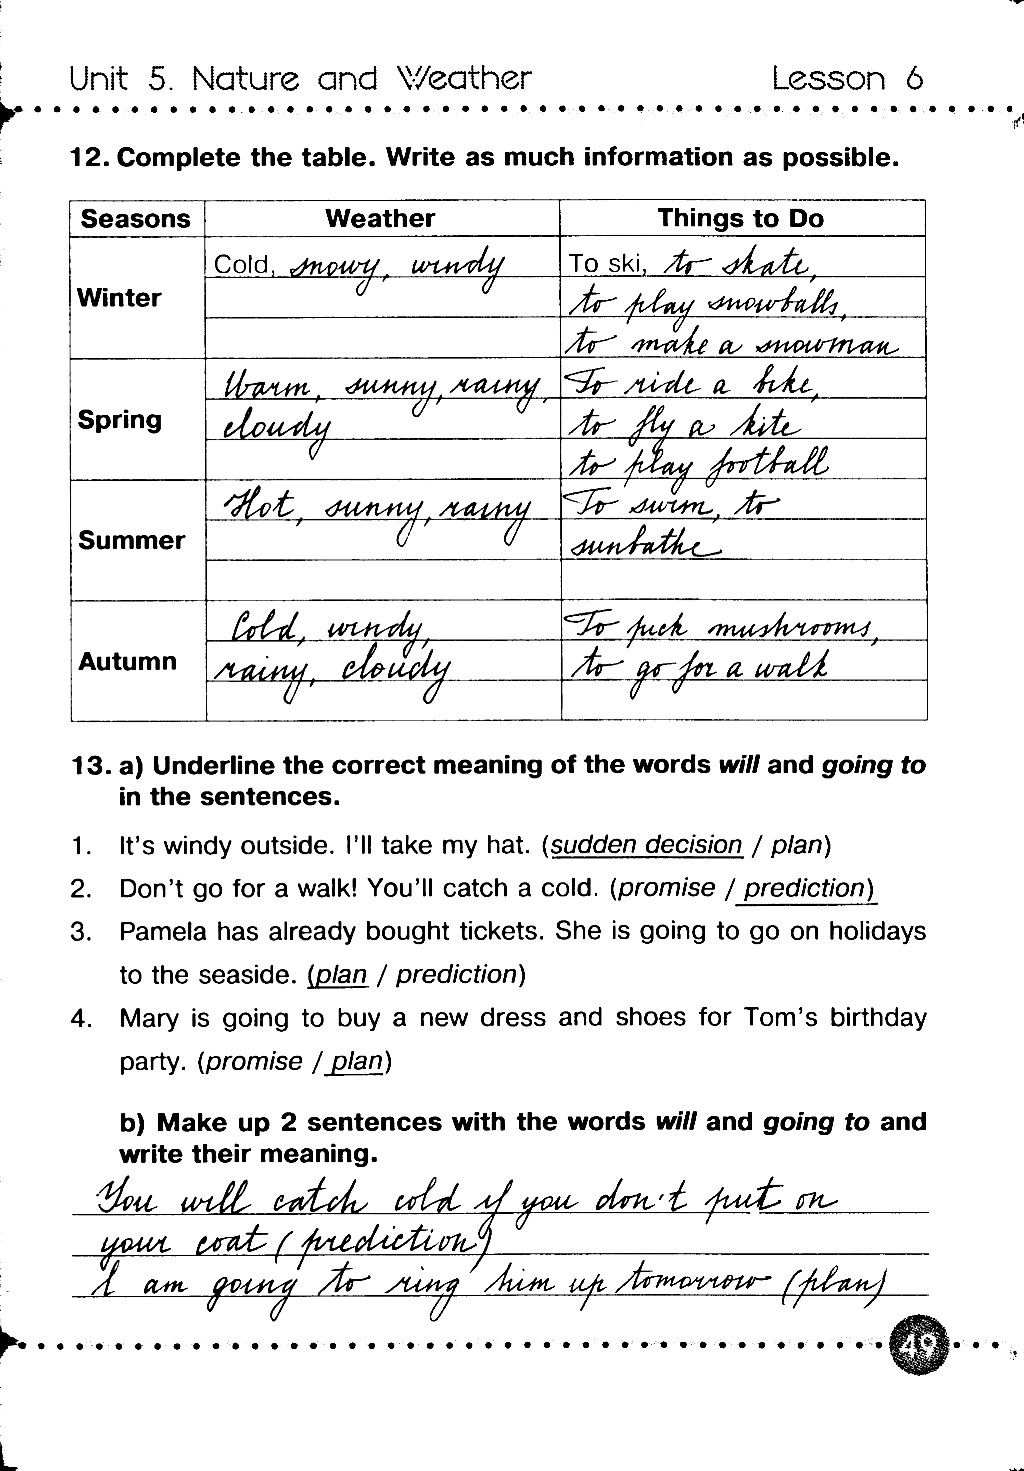 Unit 5. Nature and Weather Lesson 6
12. Complete the table. Write as much information as possible.
Seasons Weather Things to Do
Winter
Cold, snowy, windy
To ski, to skate,
to play snowballs,
to make a snowman
Spring
Warm, sunny, rainy,
cloudy
To ride a bike,
to fly a kite
to play football
Summer
Hot, sunny, rainy
To swim, to
sunbathe
Autumn
Cold, windy,
rainy, cloudy
To pick mushrooms,
to go for a walk
13. a) Underline the correct meaning of the words will and going to
in the sentences.
1. It's windy outside. I'll take my hat. (sudden decision / plan)
2. Don't go for a walk! You'll catch a cold. (promise / prediction)
3. Pamela has already bought tickets. She is going to go on holidays
to the seaside. (plan / prediction)
4. Mary is going to buy a new dress and shoes for Tom's birthday
party. (promise / plan)
b) Make up 2 sentences with the words will and going to and
write their meaning.
You will catch cold if you don't put on
your coat (prediction)
I am going to ring him up tomorrow (plan)
49